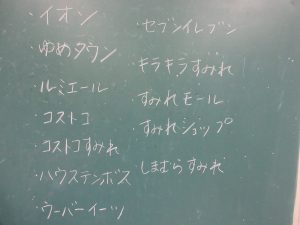 ・イオン
・ゆめタウン
・ルミエール
・コストコ
・コストコすみれ
・ハウステンボス
・ウーバーイーツ
・セブンイレブン
・キラキラすみれ
・すみれモール
・すみれショップ
・しまむらすみれ